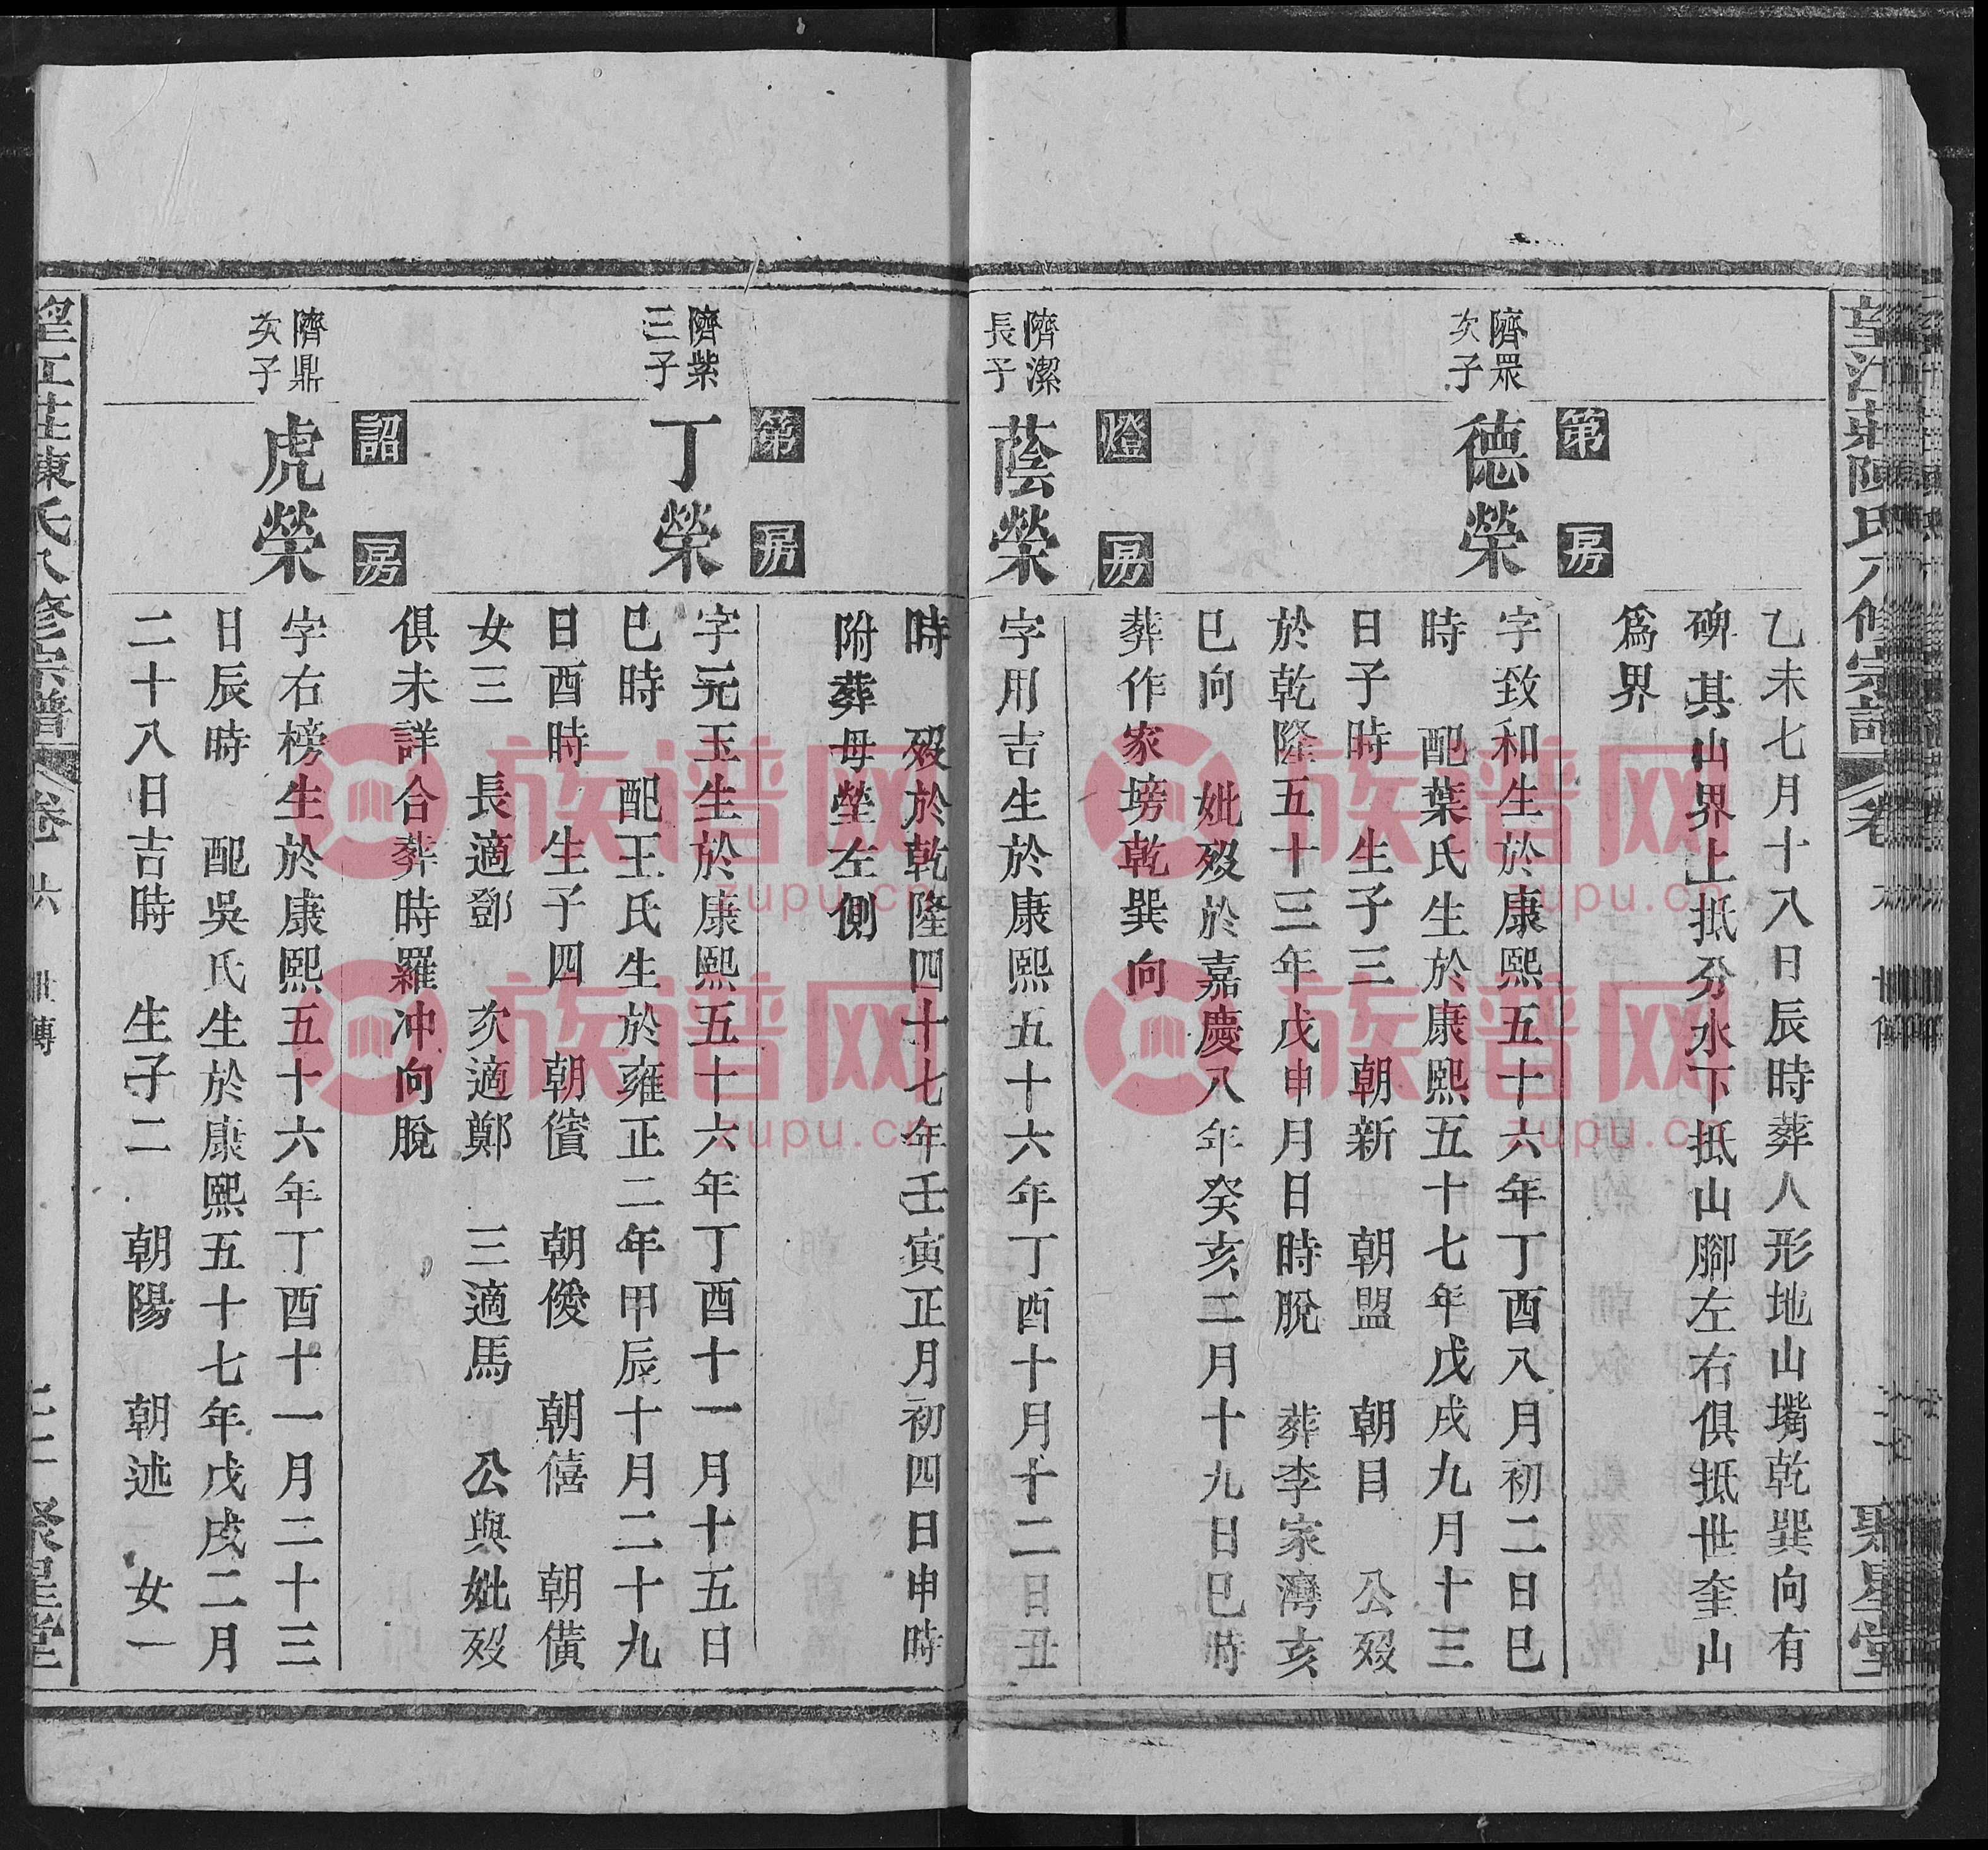 望江莊陳氏六修宗譜 卷六 世傳 聚星堂
乙未七月十八日辰時葬人形地山嘴乾巽向有
碑其山界上抵分水下抵山腳左右俱抵世奎山
爲界
第房
隮眾次子
德榮
字致和生於康熙五十六年丁酉八月初二日巳
時 配葉氏生於康熙五十七年戊戌九月十三
日子時 生子三 朝新 朝盟 朝目 公歿
於乾隆五十三年戊申月日時脫 葬李家灣亥
巳向 妣歿於嘉慶八年癸亥二月十九日巳時
葬作家塝乾巽向
燈房
隮潔長子
蔭榮
字用吉生於康熙五十六年丁酉十月十二日丑
時 歿於乾隆四十七年壬寅正月初四日申時
附葬母塋左側
第房
隮紫三子
丁榮
字元玉生於康熙五十六年丁酉十一月十五日
巳時 配王氏生於雍正二年甲辰十月二十九
日酉時 生子四 朝儹 朝儍 朝僖 朝儥
女三 長適鄧 次適鄭 三適馬 公與妣歿
俱未詳合葬時羅冲向脫
詔房
隮鼎次子
虎榮
字右榜生於康熙五十六年丁酉十一月二十三
日辰時 配吳氏生於康熙五十七年戊戌二月
二十八日吉時 生子二 朝陽 朝述 女一
望江莊陳氏六修宗譜 卷六 世傳 聚星堂
族谱网
zupu.cn
族谱网
zupu.cn
族谱网
zupu.cn
族谱网
zupu.cn